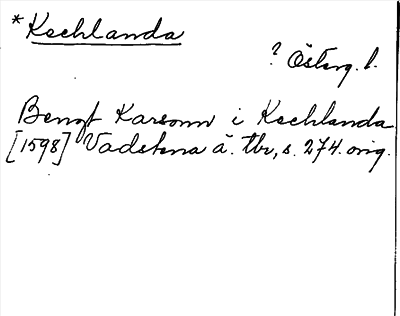 *Kechlanda
? Österg. l.
Bengt Karsonn i Kechlanda
[1598] Vadstena ä. tbr, s. 274. orig.